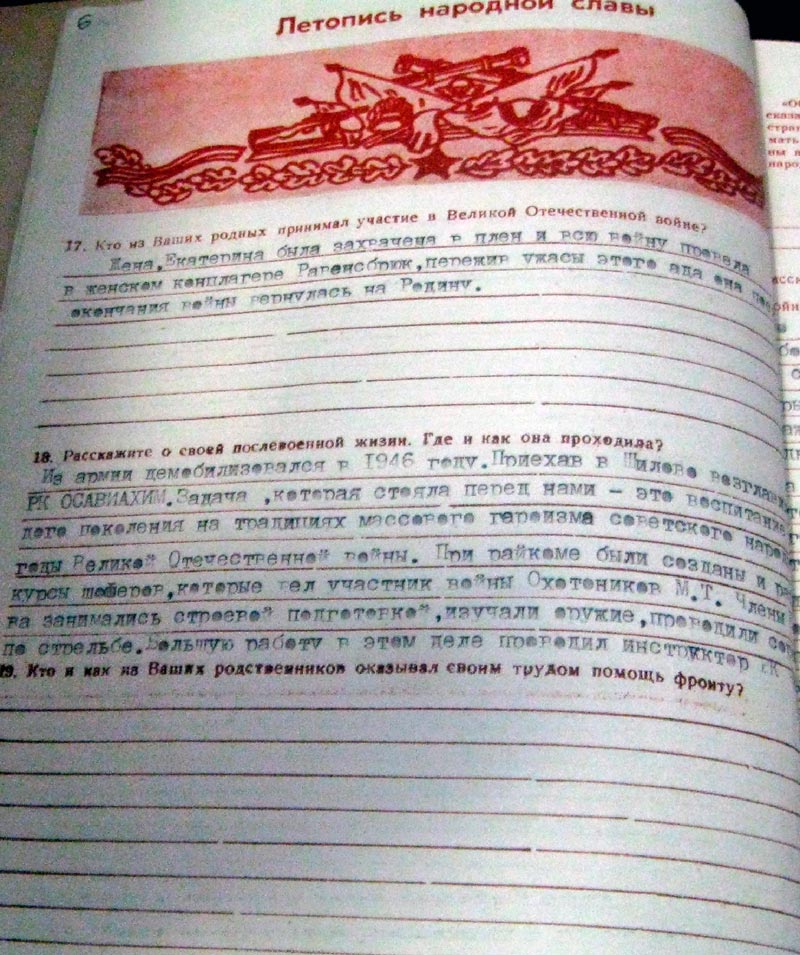 6
Летопись народной славы
17. Кто из Ваших родных принимал участие в Великой Отечественной войне?
Жена, Екатерина была захвачена в плен и всю войну провела
в женском концлагере Равенсбрюк, пережив ужасы этого ада она
окончания войны вернулась на Родину.
18. Расскажите о своей послевоенной жизни. Где и как она проходила?
Из армии демобилизовался в 1946 году. Приехав в Шилово
РК ОСАВИАХИМ. Задача ,которая стояла перед нами - это воспитание
дого поколения на традициях массового героизма советского
годы Великой Отечественной войны. При райкоме были созданы и
курсы шоферов,которые вел участник войны Охотоников М.Т. Члены
ва занимались строевой подготовкой,изучали оружие,проводили
по стрельбе.Большую работу в этом деле проводил инструктор РК
19. Кто и как из Ваших родственников оказывал своим трудом помощь фронту?